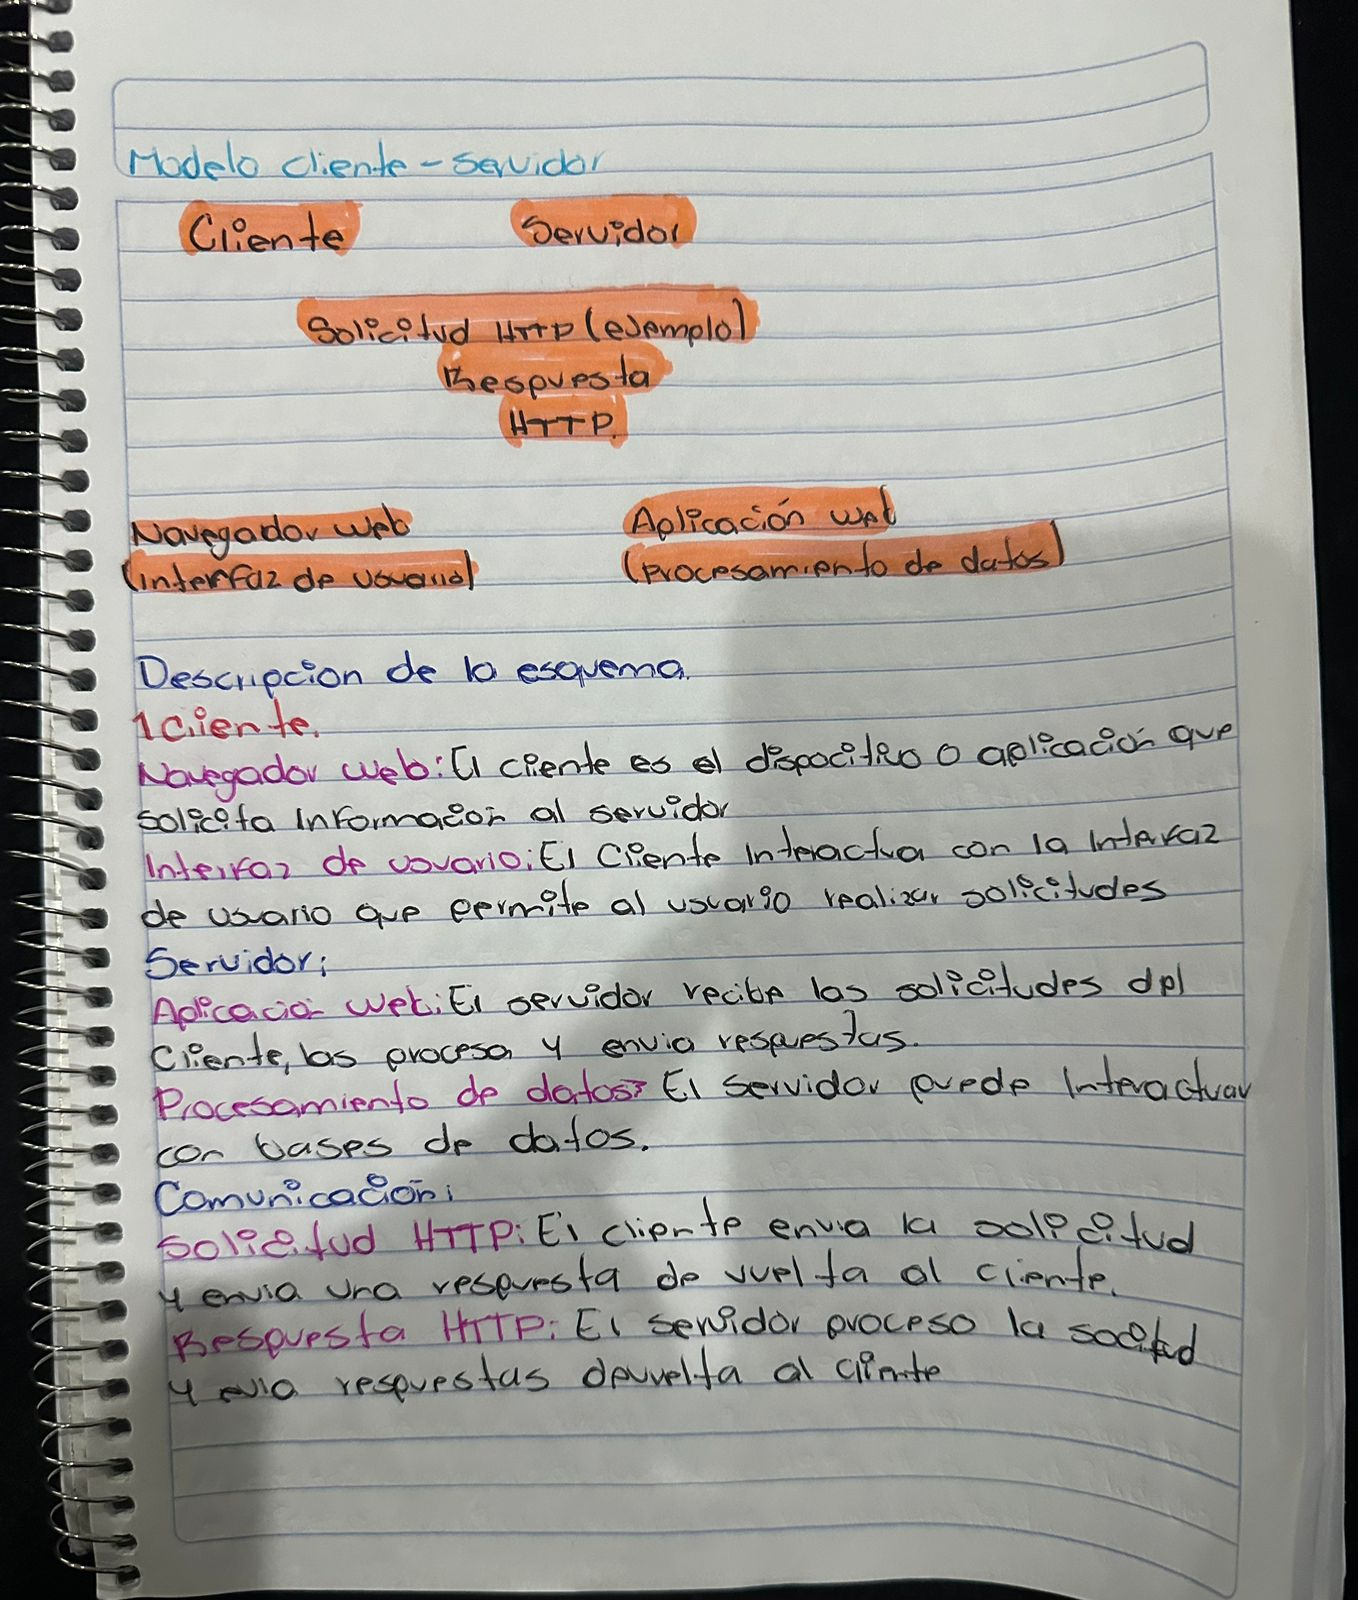 Modelo cliente - servidor
Cliente Servidor
Solicitud HTTP (ejemplo)
Respuesta
HTTP.
Navegador web Aplicación web
(interfaz de usuario) (Procesamiento de datos)
Descripcion de la esquema.
1 Cliente.
Navegador web: El cliente es el dispocitivo o aplicación que
solicita informacion al servidor
Interfaz de usuario: El Cliente interactua con la interfaz
de usuario que permite al usuario realizar solicitudes
Servidor:
Aplicacion web: El servidor recibe las solicitudes del
Cliente, las procesa y envia respuestas.
Procesamiento de datos: El servidor puede interactuar
con bases de datos.
Comunicación:
Solicitud HTTP: El cliente envia la solicitud
y envia una respuesta de vuelta al cliente.
Respuesta HTTP: El servidor proceso la
y evia respuestas devuelta al cliente